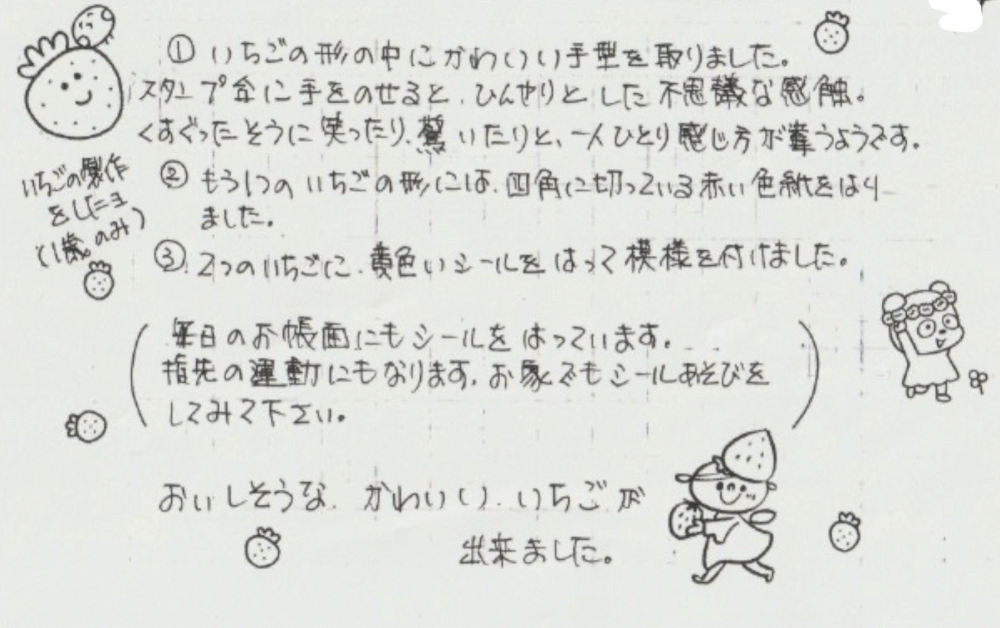 ① いちごの形の中にかわいい手型を取りました。
スタンプ台に手をのせると、ひんやりとした不思議な感触。
くすぐったそうに笑ったり、驚いたりと、一人ひとり感じ方が違うようです。
いちごの製作
をしたヨ
(1歳のみ)
② もう1つのいちごの形には、四角に切っている赤い色紙をはり
ました。
③ 2つのいちごに、黄色いシールをはって模様を付けました。
(毎日のお帳面にもシールをはっています。
指先の運動にもなります。お家でもシールあそびを
してみて下さい。)
おいしそうな、かわいい、いちごが
出来ました。